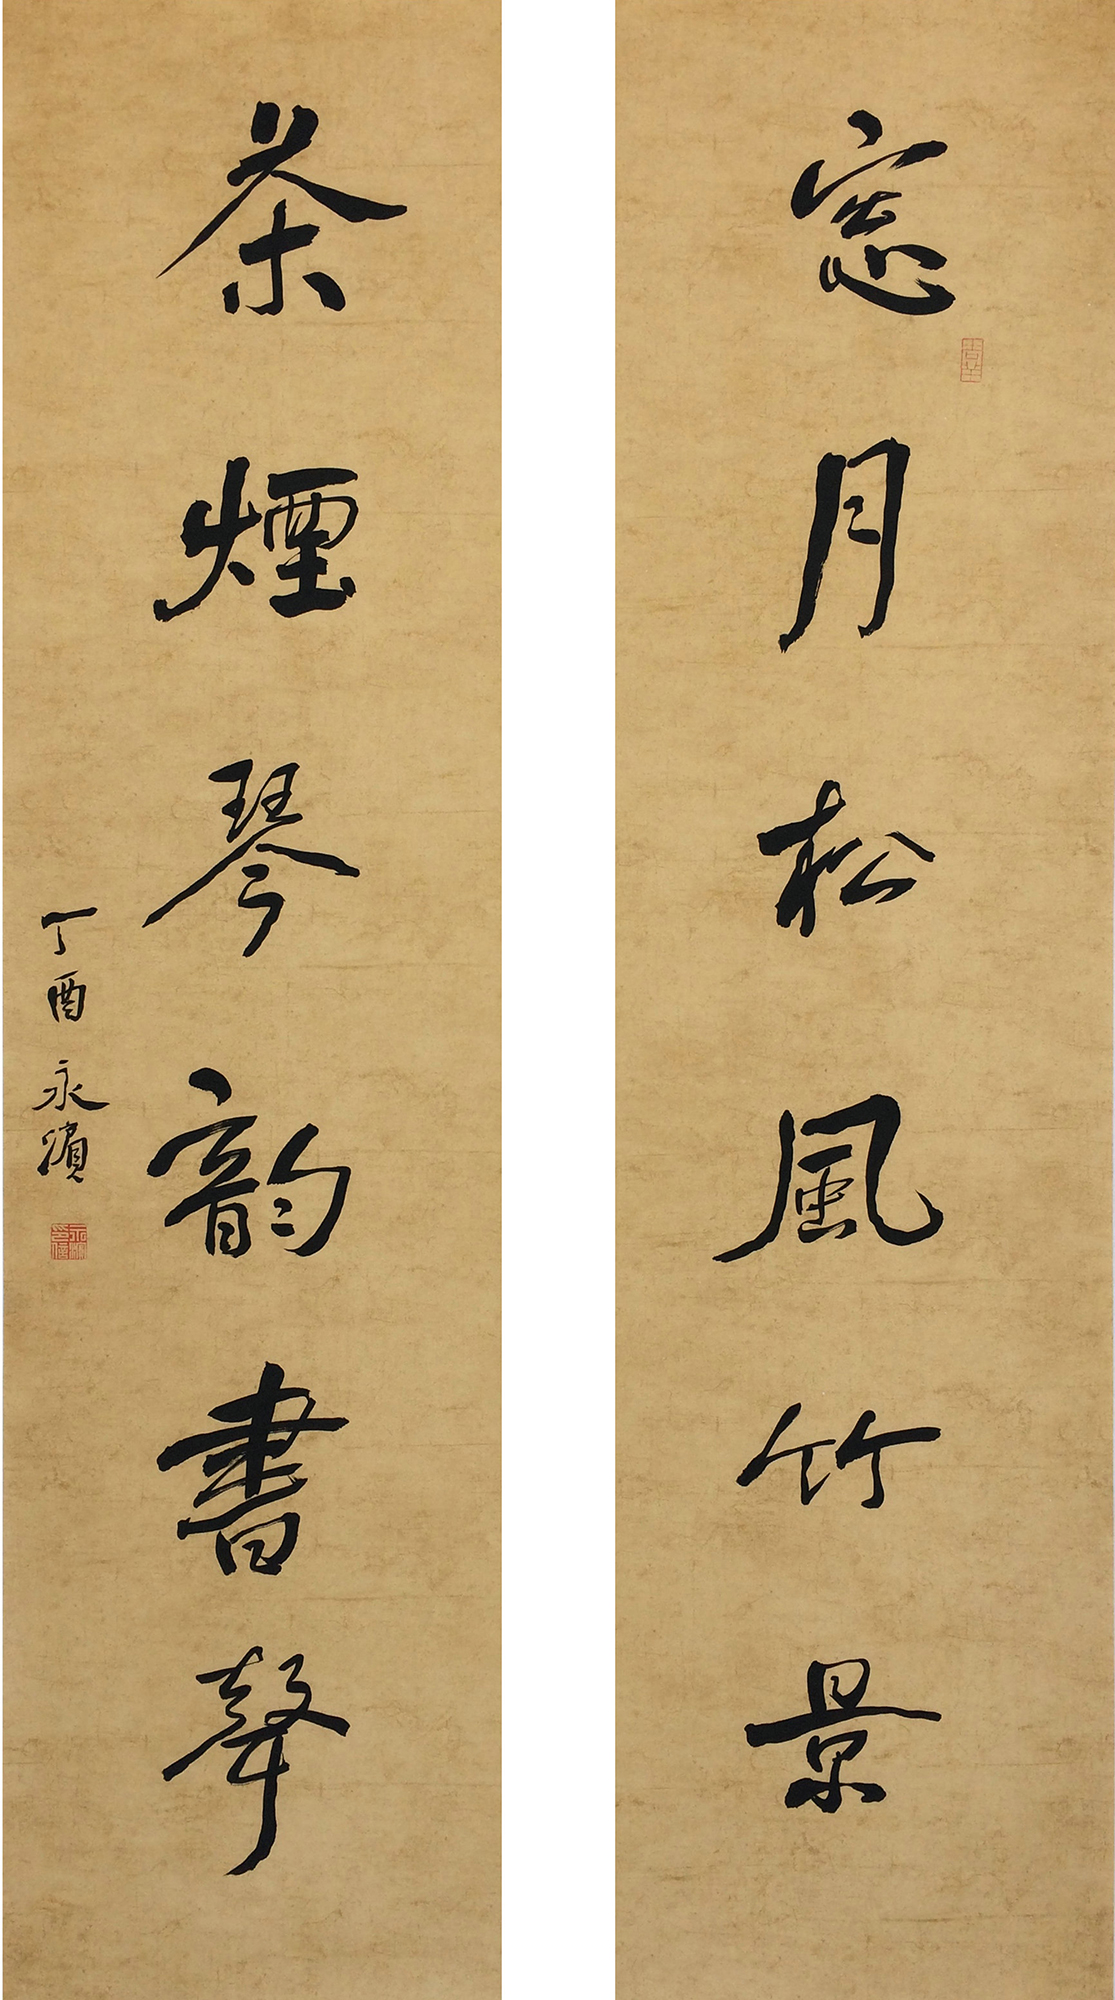 窓月松風竹景
茶煙琴韵書聲
丁酉永濱